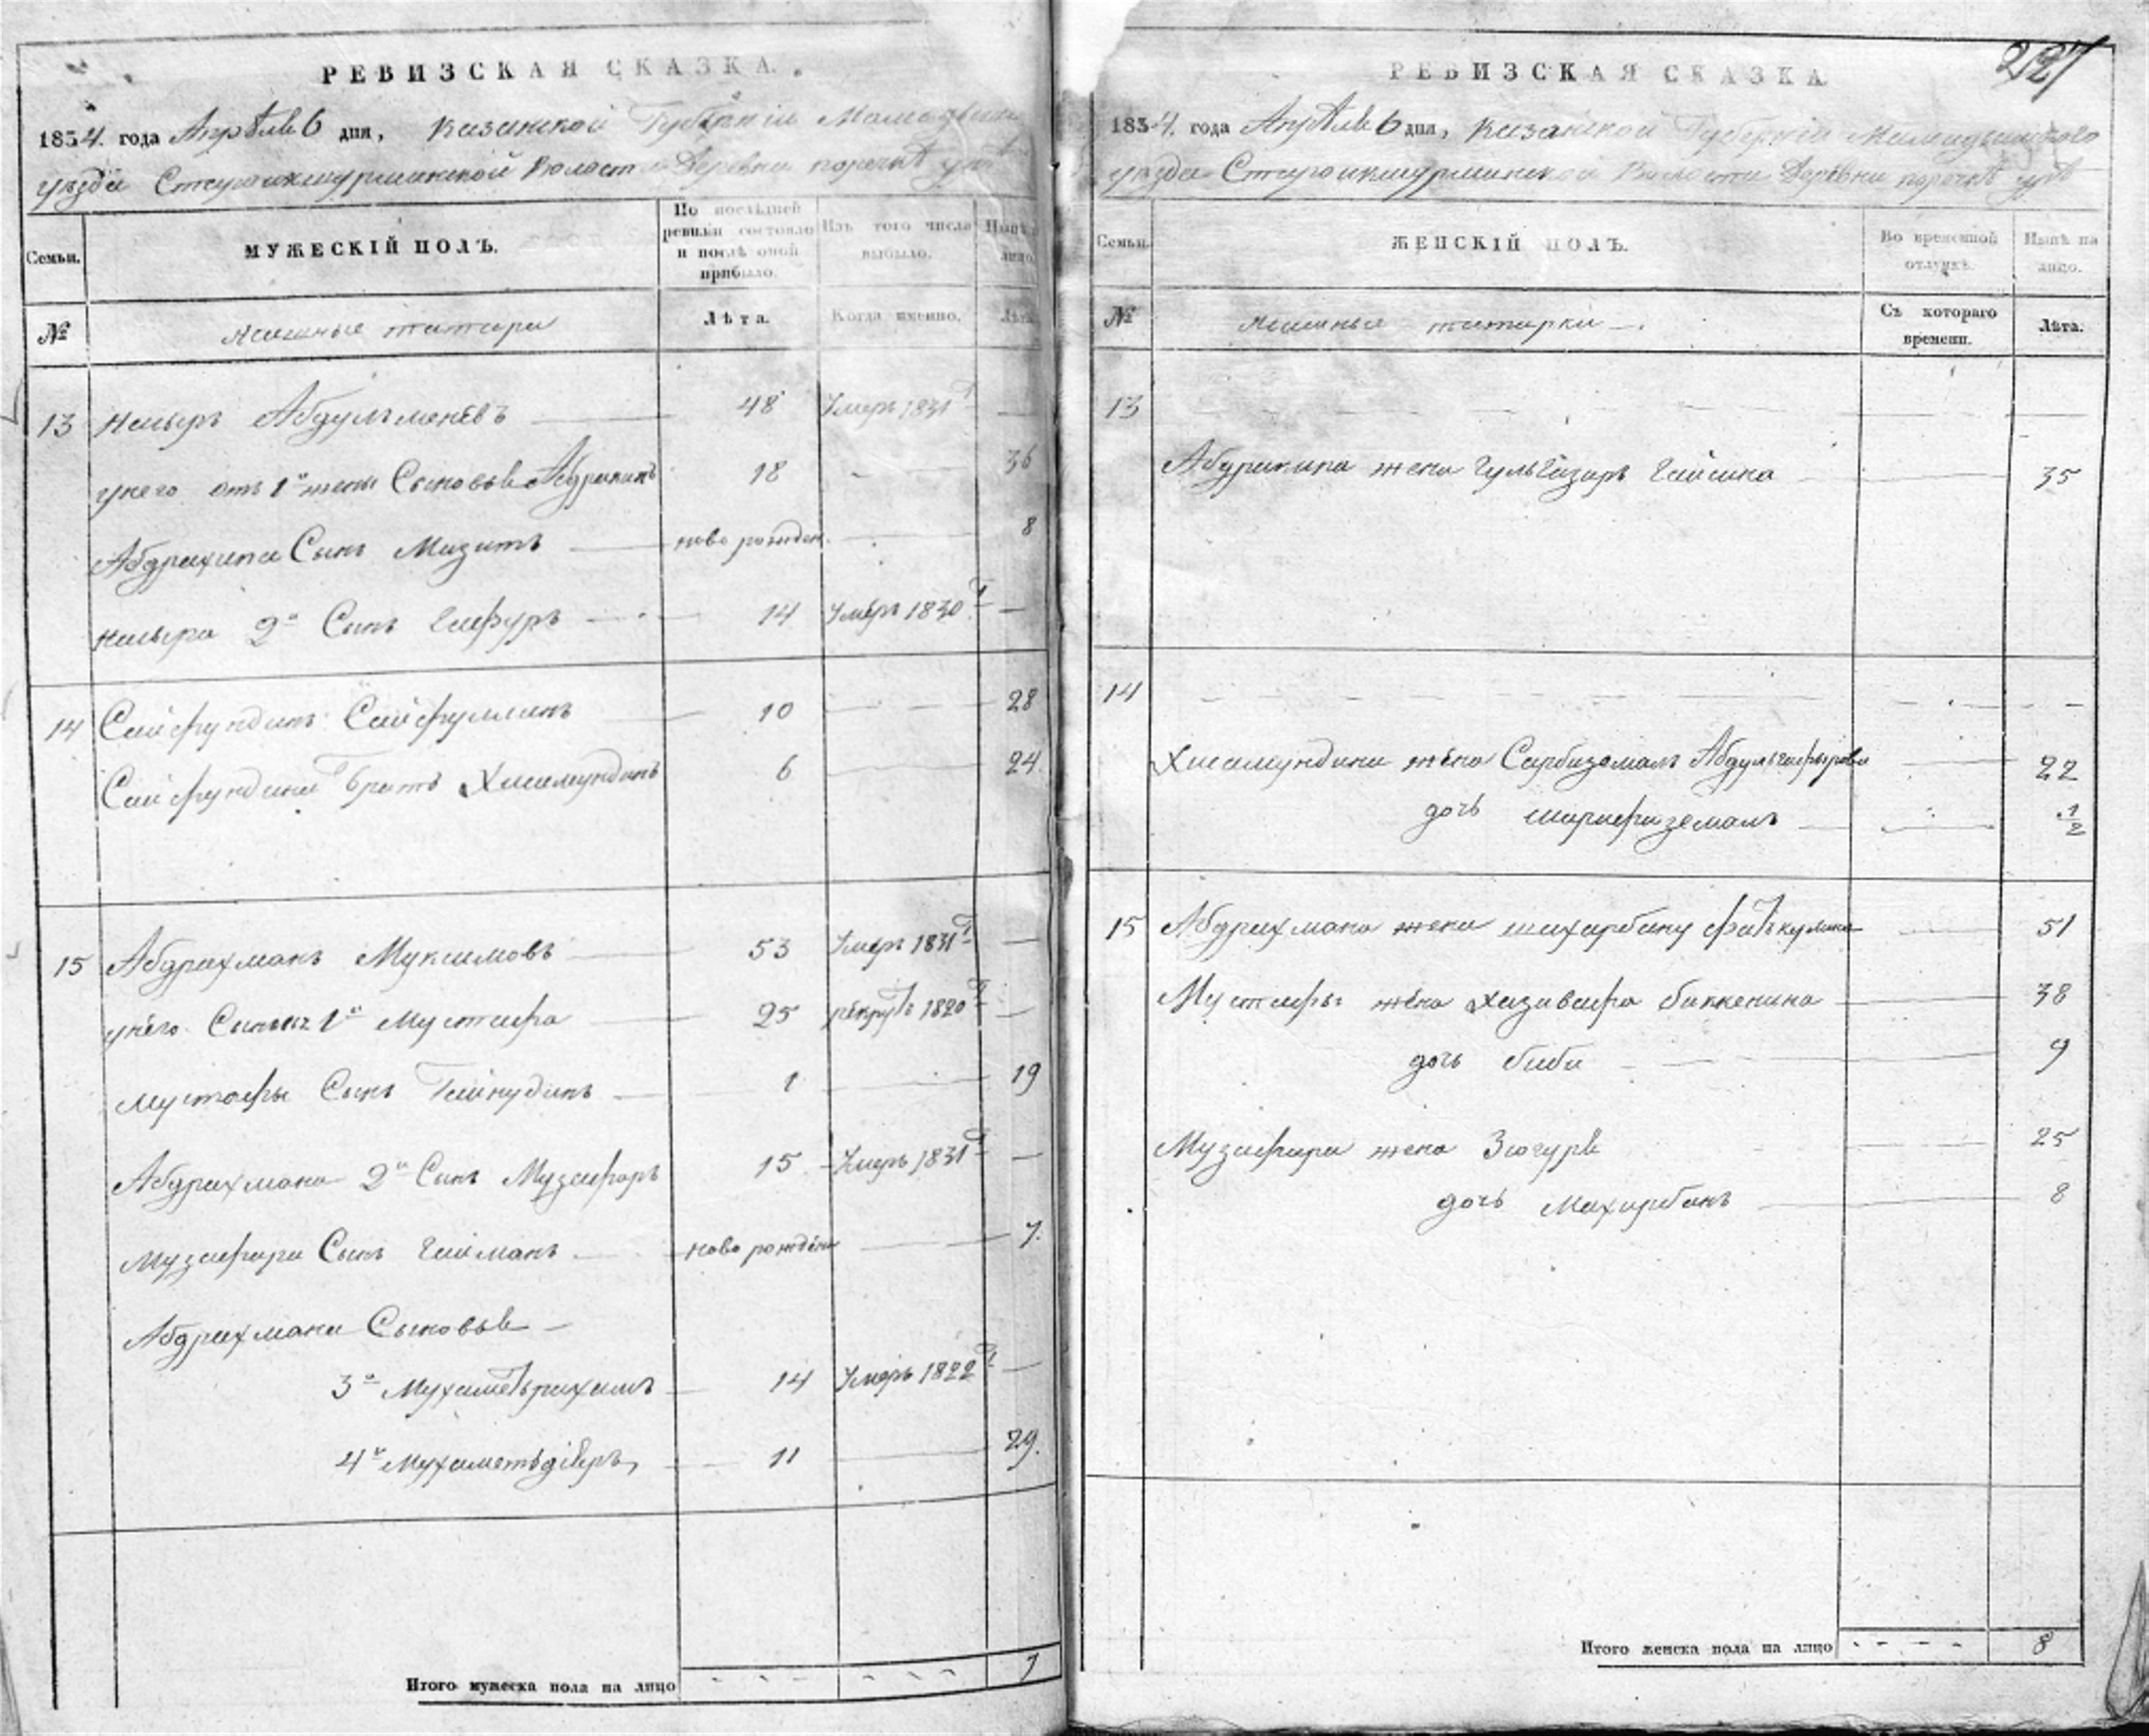 РЕВИЗСКАЯ СКАЗКА.
1834. года Апреля 6 дня, Казанской Губернии Мамадыш
уезда Старо волости Деревни
Семьи.
МУЖЕСКІЙ ПОЛЪ.
По послѣдней ревизіи состояло и послѣ оной прибыло.
Изъ того числа выбыло.
Нынѣ на лицо.
№
ясашные татары
Лѣта.
Когда именно.
Лѣта.
13 Абдулменевъ 48 Умеръ 1831 г
у него отъ 1й жены Сыновья Абдрахипъ 18 36
Абдрахипа Сынъ Мазитъ ново рожден. 8
2й Сынъ Гафуръ 14 Умеръ 1830 г
14 Сайфундинъ Сайфуллинъ 10 28
Сайфундина братъ Хисамундинъ 6 24.
15 Абдрахманъ Муксимовъ 53 Умеръ 1831 г
у него Сыновья 1й Мустафа 25 рекрутъ 1820 г
Мустафы Сынъ Гайнудинъ 1 19
Абдрахмана 2й Сынъ Музафаръ 15 Умеръ 1831 г
Музафара Сынъ Гайманъ ново рожденъ 7.
Абдрахмана Сыновья
3й Мухаметрахимъ 14 Умеръ 1822 г
4й 11 29.
Итого мужеска пола на лицо 7
РЕВИЗСКАЯ СКАЗКА
1834. года Апреля 6 дня, Казанской Губерніи Мамадышского
уезда Волости Деревни
Семьи.
ЖЕНСКІЙ ПОЛЪ.
Во временной отлучкѣ.
Нынѣ на лицо.
№
ясашныя татарки
Съ котораго времени.
Лѣта.
13
Абдрахипа жена 35
14
Хисамундина жена Сарбизамалъ 22
дочь Шарифиземалъ 1/2
15 Абдрахмана жена 51
Мустафы жена Биккенина 38
дочь Биби 9
Музафара жена Зюгуря 25
дочь Махирбанъ 8
Итого женска пола на лицо 8